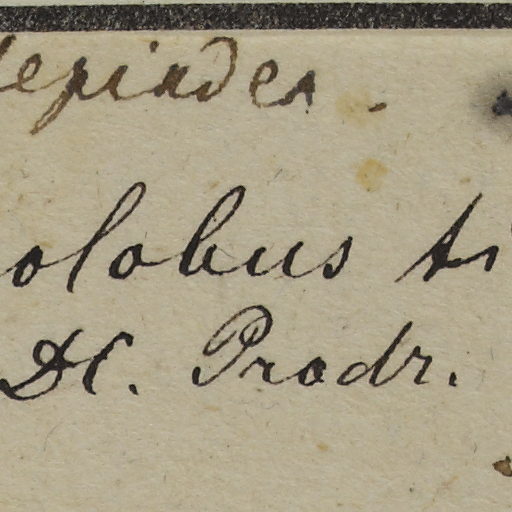 lepiadea -
olobus ti
DC. Prodr.